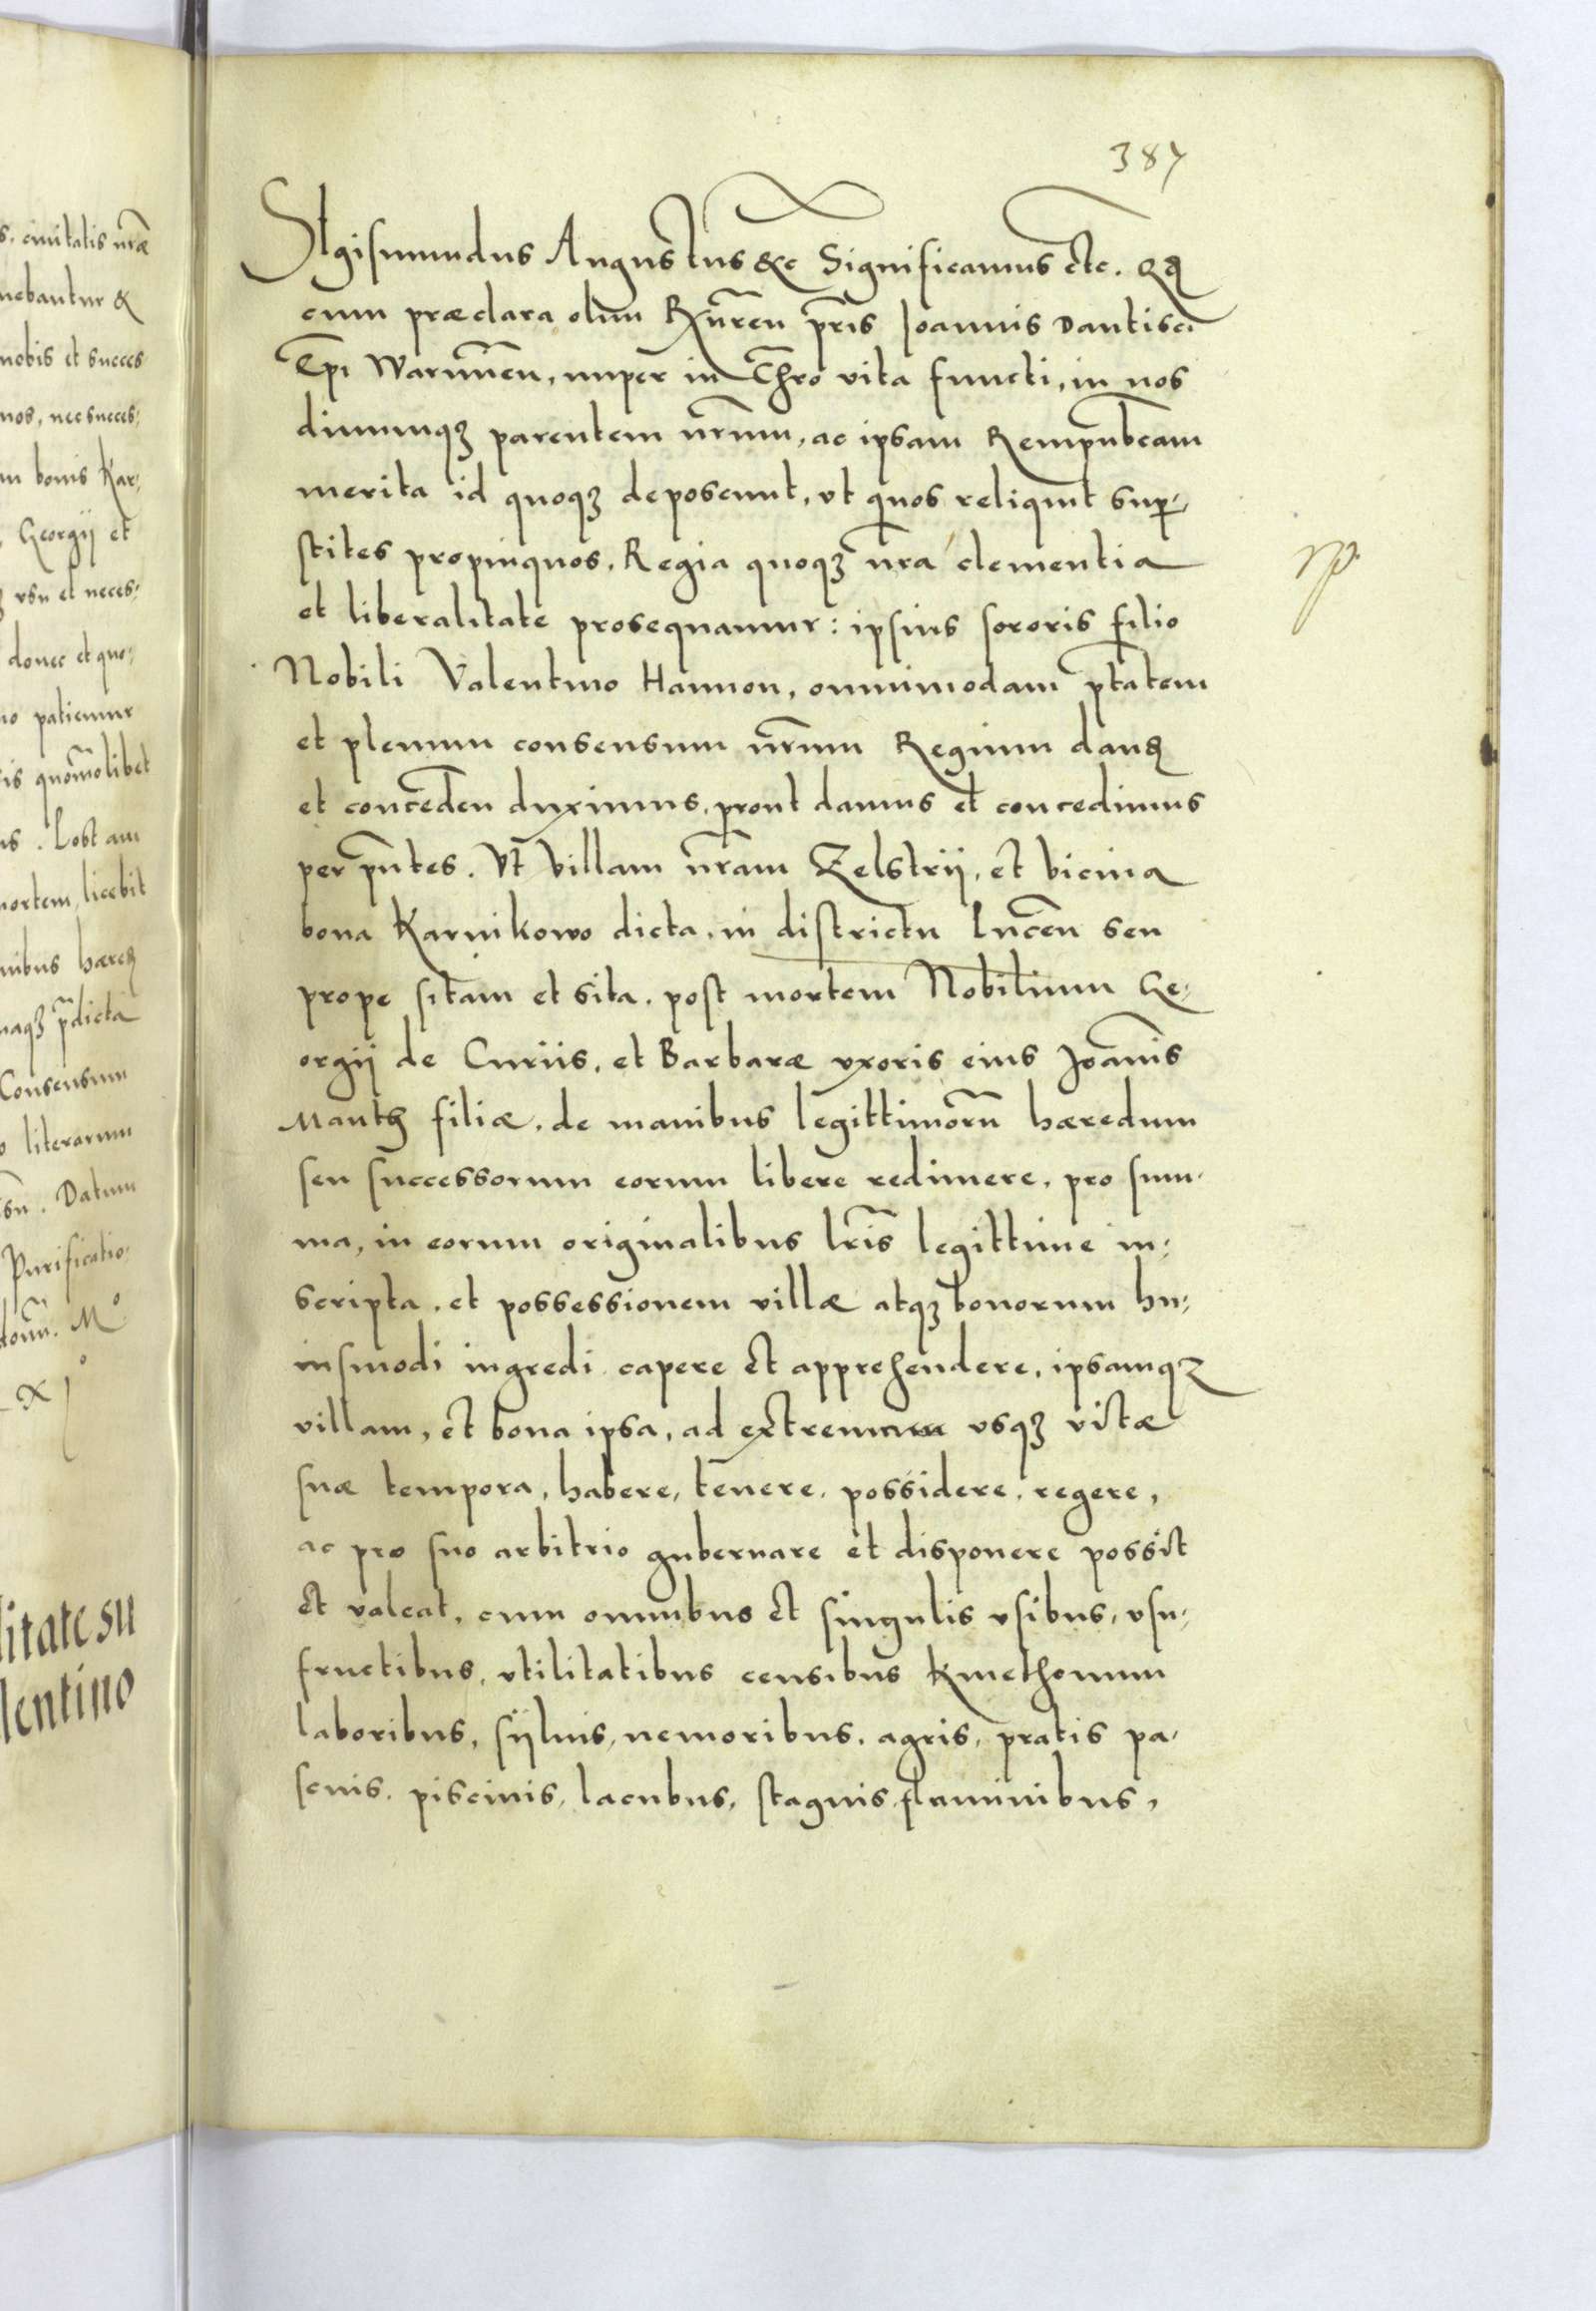 s. ciuitatis nr̃æ
nebantur &
nobis et succes
nos, nec succes:
m bonis Kar:
Georgij et
vsu et neces:
donec et quo:
no patiemur
is quom̃olibet
us. Lost am
mortem, licebit
nibus hæred
naqꝫ p̃dicta
Consensum
o literarum
su. Datum
Purificatio:
M°
litate su
lentino
387
SIgismundus Augustus &c Significamus etc. Qꝫ
cum præclara olim Rx̃n̄ren pr̃is Joannis Dantisci
Ep̃i Warmien, nuper in Chr̃o vita functi, in nos
diuumqꝫ parentem nr̃mm, ac ipsam Rempub̃cam
merita id quoqꝫ deposcunt, vt quos reliquit sup-
stites propinquos, Regia quoqꝫ nr̃a clementia
et liberalitate prosequamur: ipsius sororis filio
Nobili Valentino Hannon, omnimodam ptãtem
et plenum consensum nr̃mm Regium dand
et conceden duximus, prout damus et concedimus
per pñtes. Vt Villam nr̃am Zelstrij, et vicina
bona Karnikowo dicta, in districtu Lucen seu
prope sitam et sita, post mortem Nobilium Ge:
orgij de Curiis, et Barbaræ vxoris eius Joañis
Mantꝫ filiæ, de manibus legittimorũ hæredum
seu successorum eorum libere redimere, pro sum-
ma, in eorum originalibus lr̃is legittime in:
scripta, et possessionem villæ atqꝫ bonorum hu:
iusmodi ingredi capere et apprehendere, ipsamqꝫ
villam, et bona ipsa, ad extrema vsqꝫ vitæ
suæ tempora, habere, tenere, possidere, regere,
ac pro suo arbitrio gubernare et disponere possit
et valeat, cum omnibus et singulis vsibus, vsu:
fructibus, vtilitatibus censibus Kmethonum
laboribus, sÿluis, nemoribus, agris, pratis pa-
scuis, piscinis, lacubus, stagnis, fluminibus,